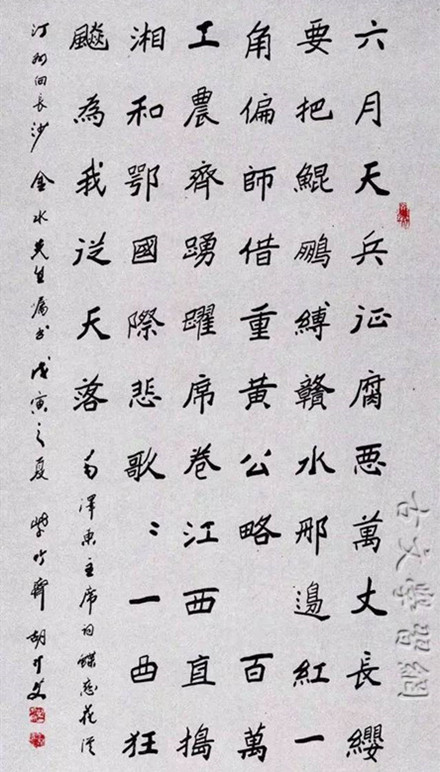 六月天兵征腐悪萬丈長纓
要把鯤鵬縛贛水那邊紅一
角偏師借重黄公略 百萬
工農齊踴躍席卷江西直搗
湘和鄂國際悲歌〻一曲狂
飈為我從天落 毛澤東主席詞蝶恋花從
汀州向長沙 金水先生属書 戊寅之夏 紫竹齋 胡
古文學習網